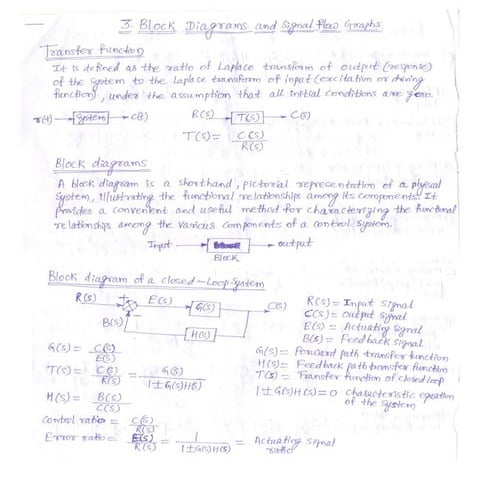 3. Block Diagrams and Signal flow Graphs
Transfer function
It is defined as the ratio of Laplace transform of output (response)
of the system to the Laplace transform of input (excitation or driving
function), under the assumption that all initial conditions are zero.
r(t) → System → c(t)   R(S) → T(S) → C(S)
T(S) = C(S) / R(S)
Block diagrams
A block diagram is a shorthand, pictorial representation of a physical
System, illustrating the functional relationships among its components. It
provides a convenient and useful method for characterizing the functional
relationships among the various components of a control system.
Input → → output
Block
Block diagram of a closed-Loop System
R(S) + E(S) G(S) C(S)
B(S) H(S)
R(S) = Input signal
C(S) = output signal
E(S) = Actuating signal
B(S) = Feedback signal
G(S) = Forward path transfer function
H(S) = Feedback path transfer function
T(S) = Transfer function of closed loop
1±G(S)H(S) = 0 characteristic equation
of the system
G(S) = C(S) / E(S)
T(S) = C(S) / R(S) = G(S) / 1±G(S)H(S)
H(S) = B(S) / C(S)
Control ratio = C(S) / R(S)
Error ratio = E(S) / R(S) = 1 / 1±G(S)H(S) = Actuating signal
ratio